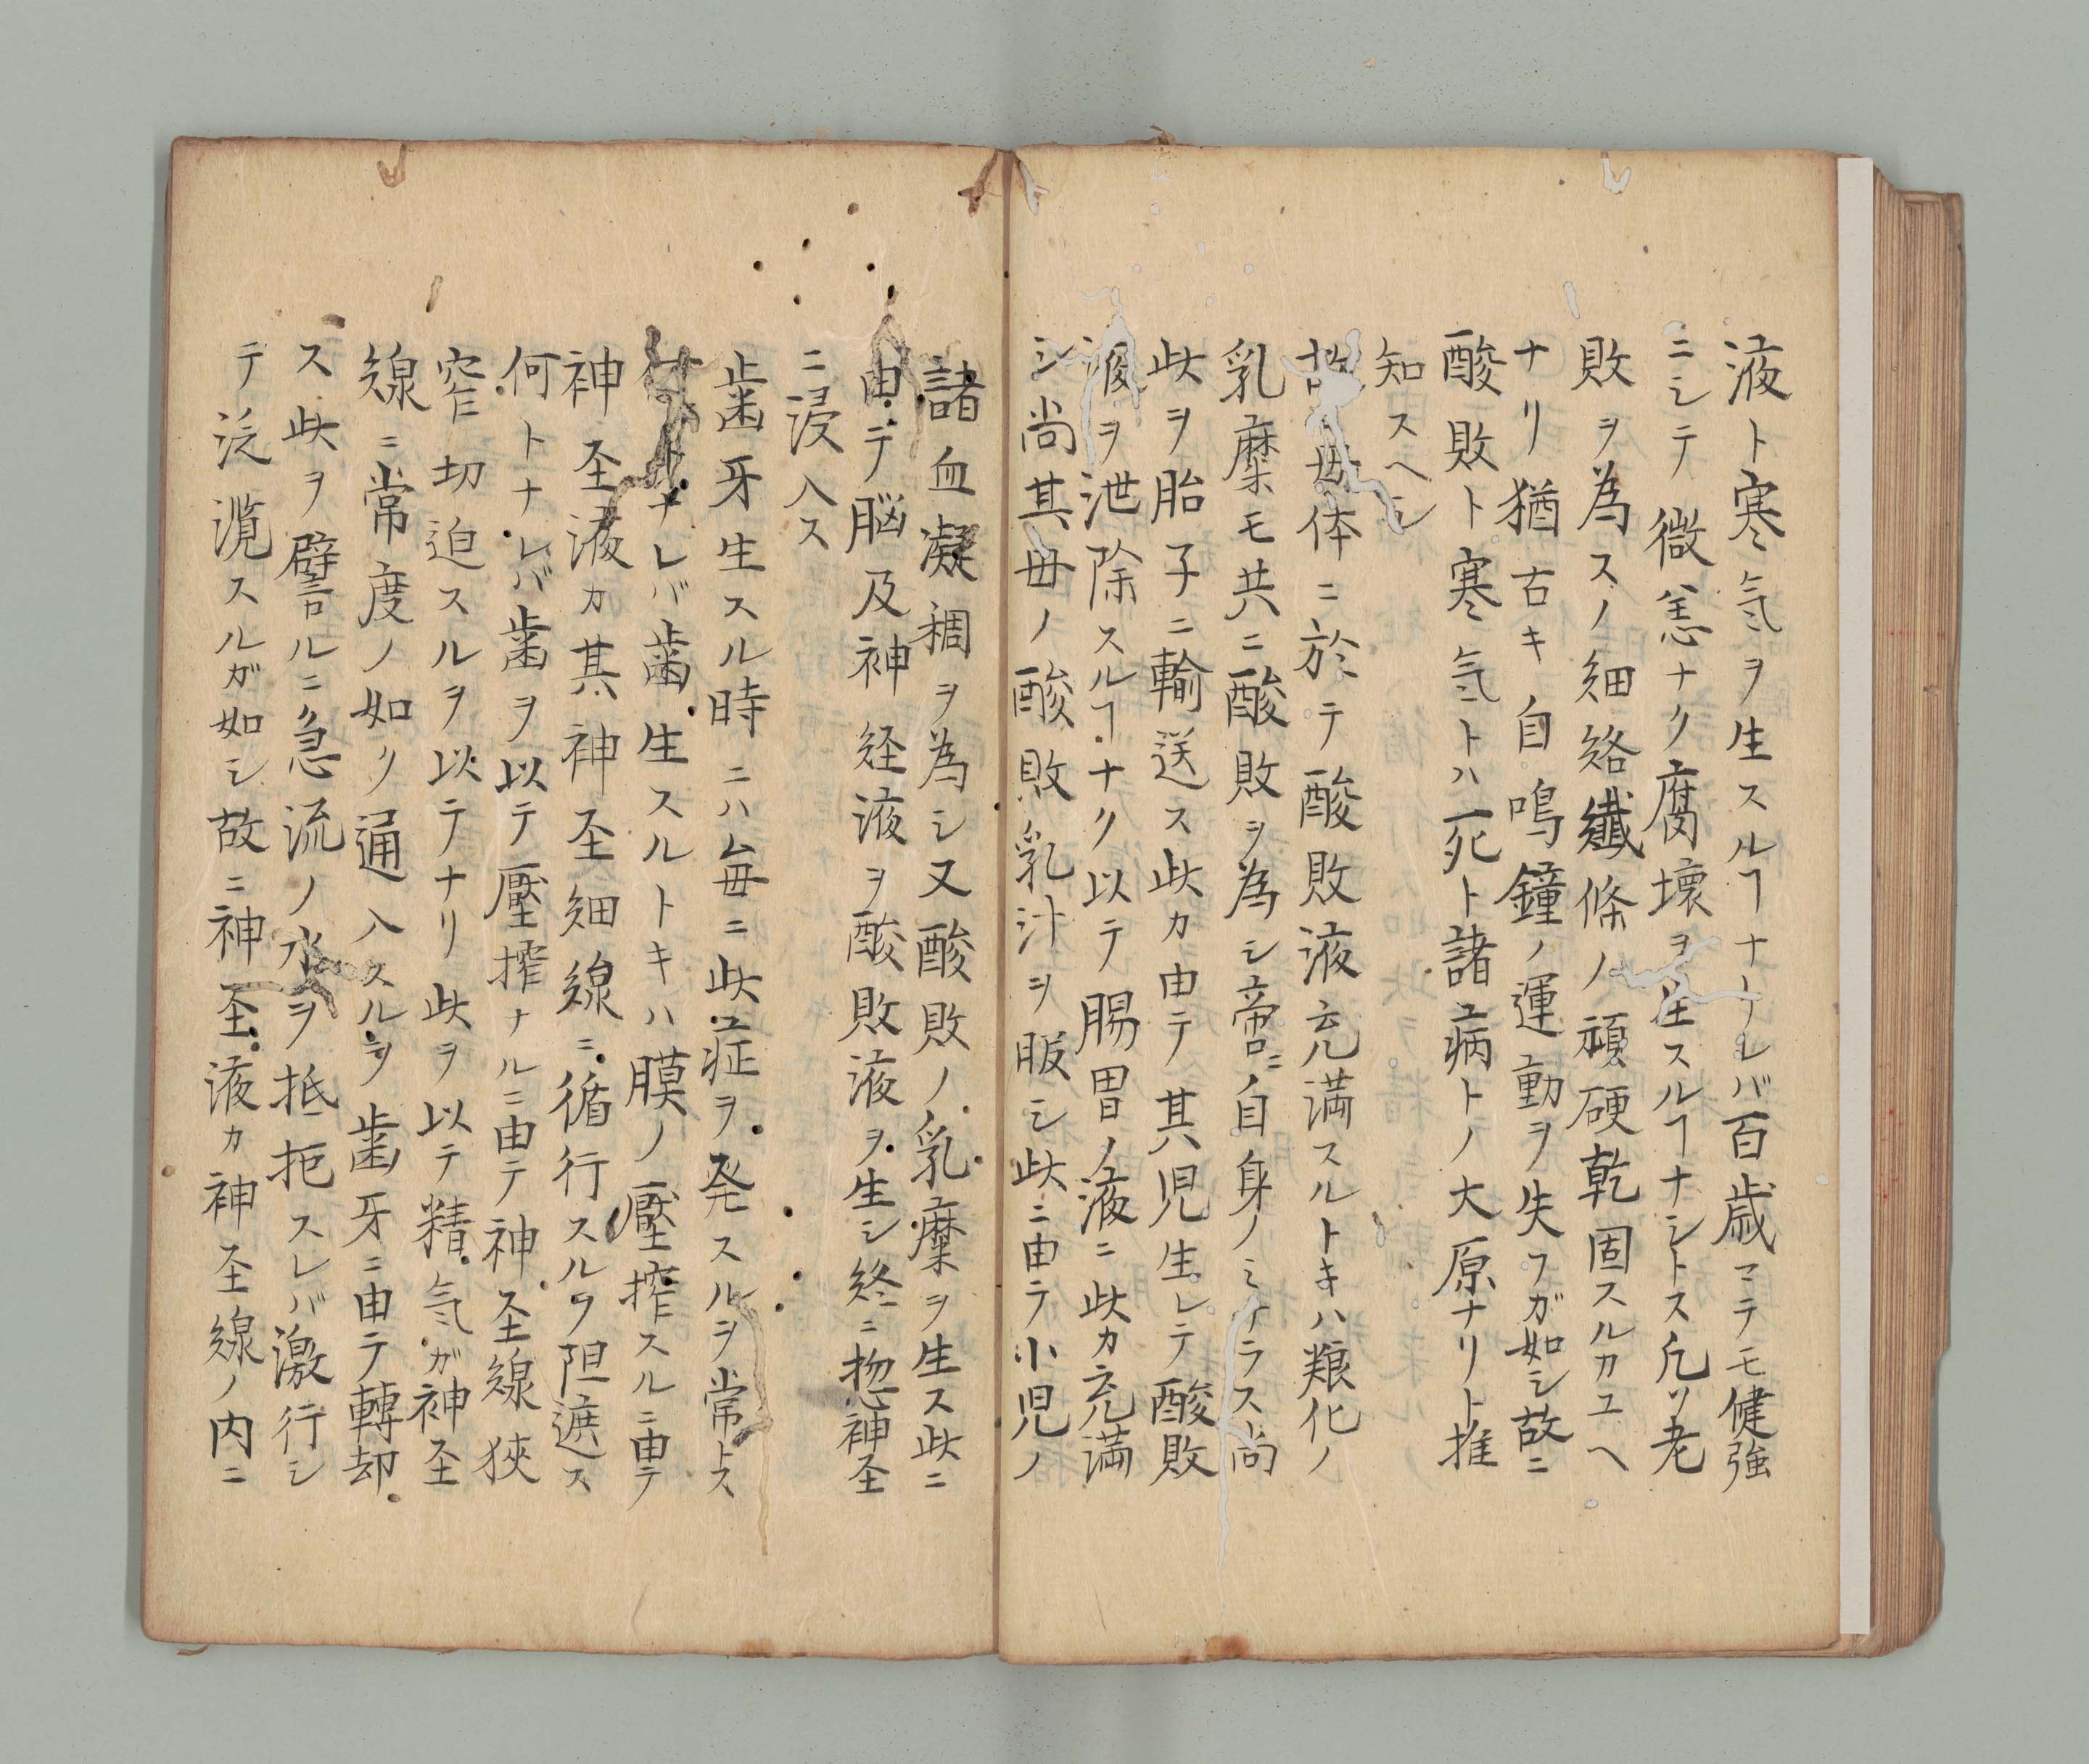 液ト寒気ヲ生スルヿナケレバ百歳マテモ健強
ニシテ微恙ナク腐壊ヲ生スルヿナシトス凡ソ老
敗ヲ為スノ細絡纎條ノ頑硬乾固スルカユヘ
ナリ猶古キ自鳴鐘ノ運動ヲ失フガ如シ故ニ
酸敗ト寒気トハ死ト諸病トノ大原ナリト推
知スヘシ
故母体ニ於テ酸敗液充満スルトキハ粮化ノ
乳糜モ共ニ酸敗ヲ為シ啻ニ自身ノミナラス尚
此ヲ胎子ニ輸送ス此カ由テ其児生レテ酸敗
液ヲ泄除スルヿナク以テ腸胃ノ液ニ此カ充満
シ尚其毋ノ酸敗乳汁ヲ服シ此ニ由テ小児ノ
諸血凝稠ヲ為シ又酸敗ノ乳糜ヲ生ス此ニ
由テ脳及神経液ヲ酸敗液ヲ生シ終ニ惣神圣
ニ浸入ス
歯牙生スル時ニハ毎ニ此症ヲ発スルヲ常トス
何トナレバ歯生スルトキハ膜ノ壓搾スルニ由テ
神圣液カ其神圣細線ニ循行スルヲ阻遮ス
何トナレバ歯ヲ以テ壓搾ナルニ由テ神圣線狹
窄切迫スルヲ以テナリ此ヲ以テ精気ガ神圣
線ニ常度ノ如ク通入スルヲ歯牙ニ由テ轉却
ス此ヲ譬ルニ急流ノ水ヲ抵拒スレバ激行シ
テ泛濫スルガ如シ故ニ神圣液カ神圣線ノ内ニ